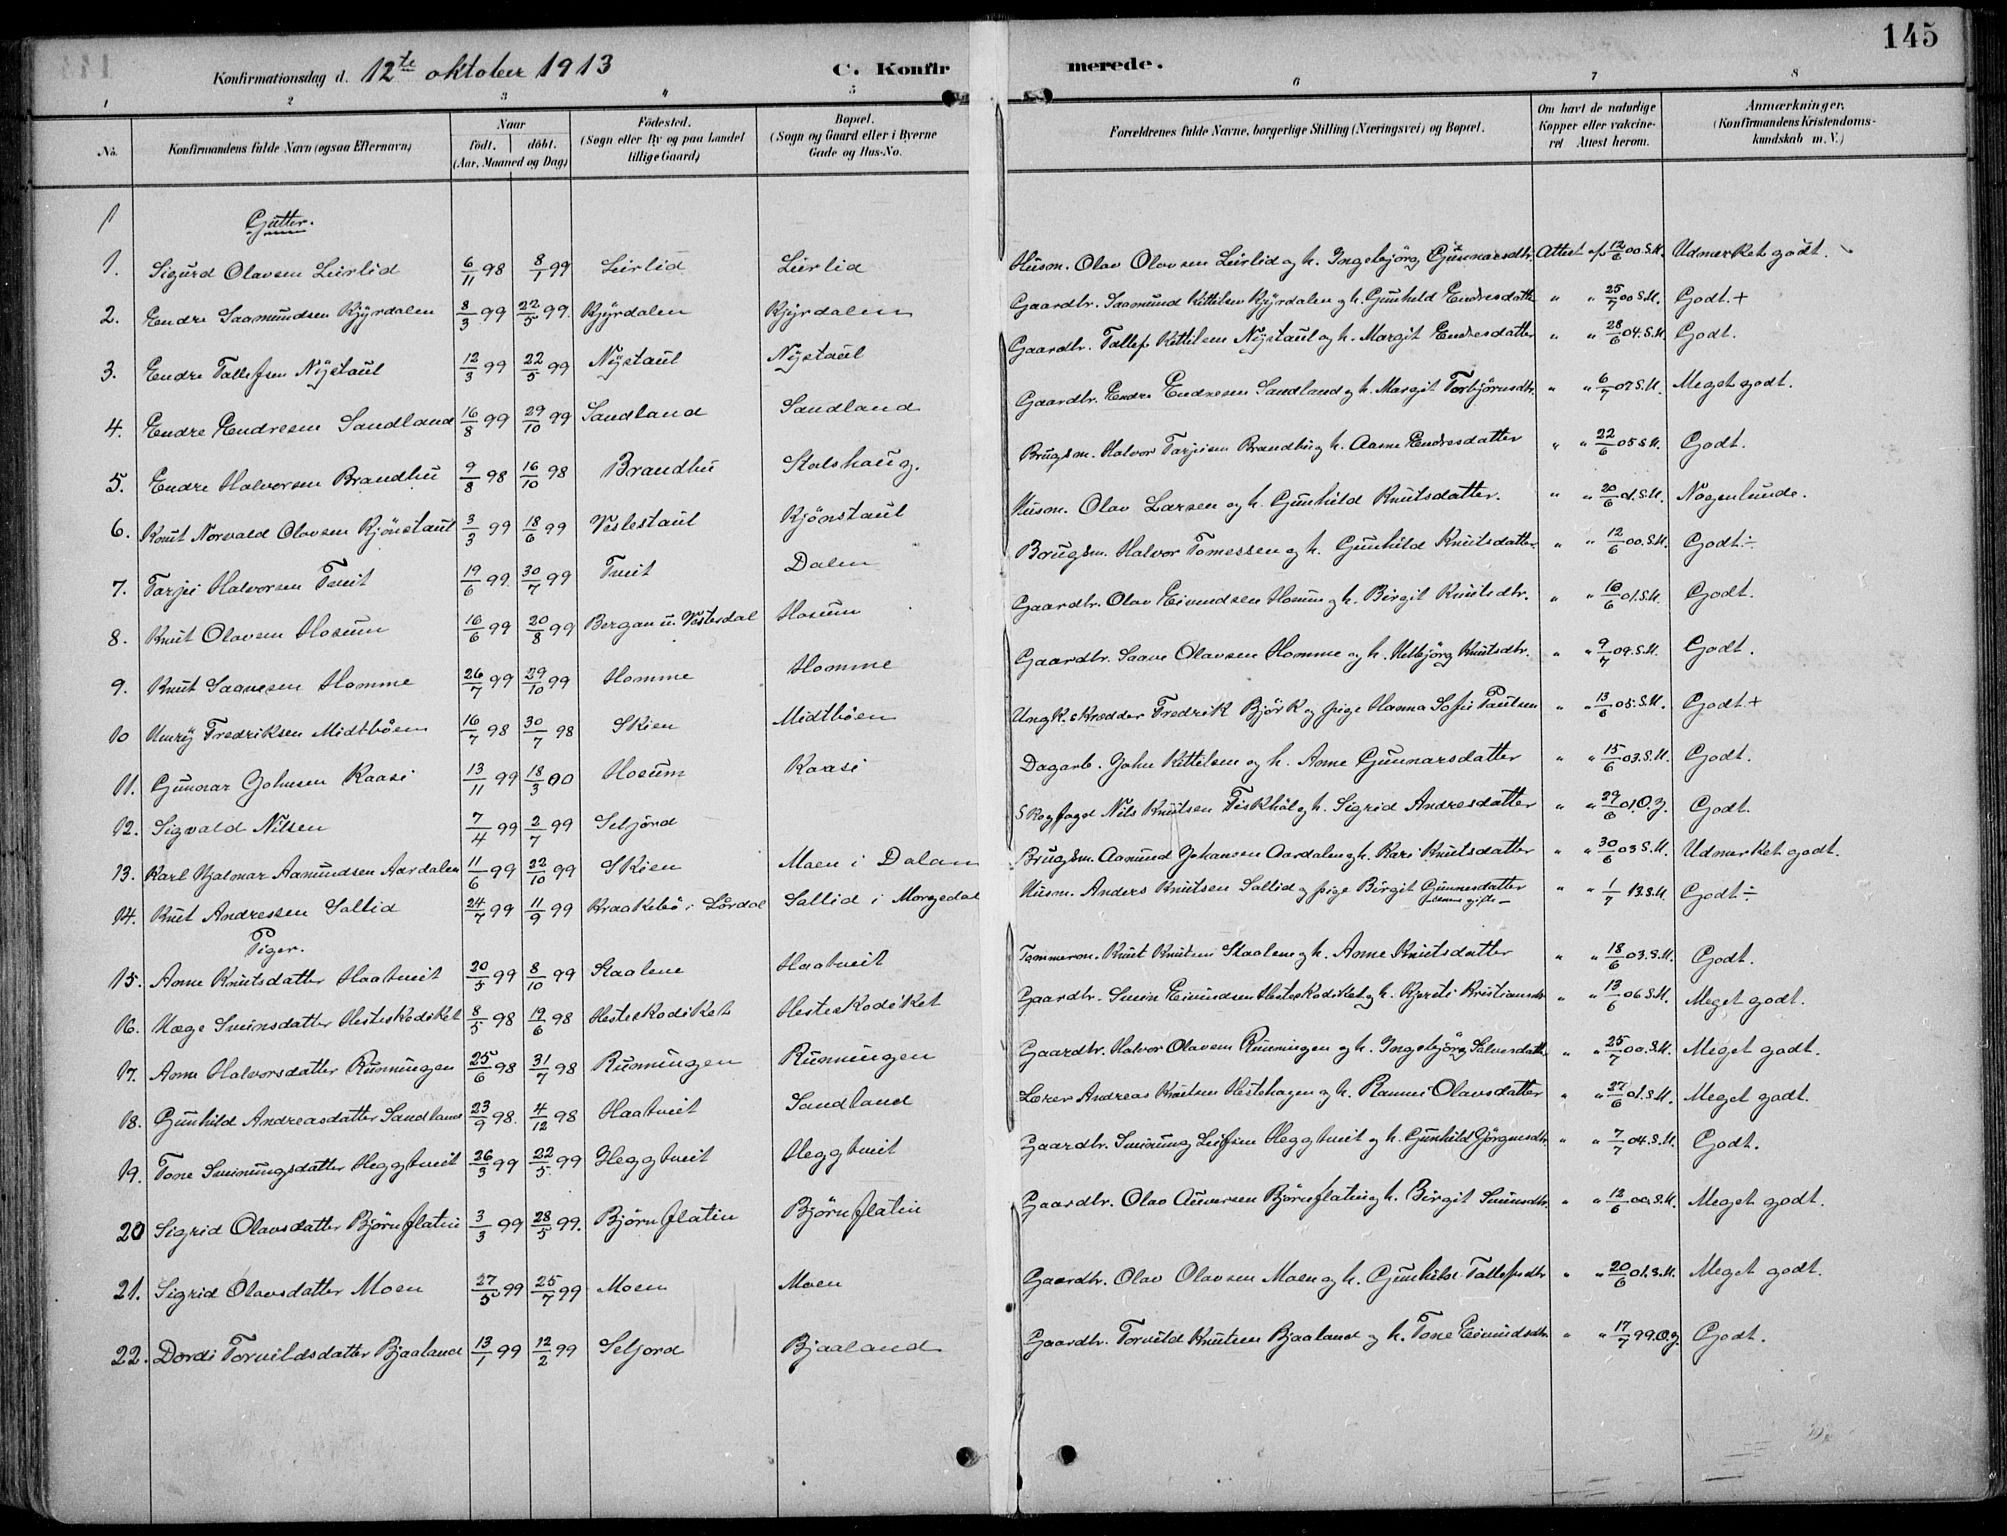 145
Konfirmationsdag d. 12te oktober 1913 C. Konfir merede.
1 2 3 4 5 6 7 8
No. Konfirmandens fulde Navn (ogsaa Efternavn) Naar födt. döbt. (Aar, Maaned og Dag) Födested. (Sogn eller By og paa Landet tillige Gaard) Bopæl. (Sogn og Gaard eller i Byerne Gade og Hus-No. Forældrenes fulde Navne, borgerlige Stilling (Næringsvei) og Bopæl. Om havt de naturlige Kopper eller vakcineret Attest herom. Anmærkninger. (Konfirmandens Kristendomskundskab m. V.)
Gutter.
1. Sigurd Olavsen Leirlid 6/11 98 8/1 99 Leirlid Leirlid Husm. Olav Olavsen Leirlid og h. Ingebjörg Gunnarsdtr. Attest af 12/6 00 S.M. Udmerket godt.
2. Endre Saamundsen Kjyrdalen 8/3 99 22/5 99. Kjyrdalen Kjyrdalen Gaardbr. Saamund Kittilsen Kjyrdalen og h. Gunhild Endresdatter " " 25/7 00 S.M. Godt. +
3. Endre Tallefsen Nystaul 12/3 99 22/5 99 Nystaul Nystaul Gaardbr. Tallef Kittilsen Nystaul og h. Margit Endresdatter " " 28/6 04. S.M Godt.
4. Endre Endresen Sandland 16/8 99 29/10 99 Sandland Sandland Gaardbr. Endre Endresen Sandland og h. Margit Torbjörnsdtr. " " 6/7 07 S.M. Meget godt.
5. Endre Halvorsen Brandhu 9/8 98 16/10 98 Brandhu Stolshaug. Brugsm. Halvor Tarjeisen Brandhu og h. Aasne Endresdatter " " 22/6 05 S.M. Godt.
6. Knut Norvald Olavsen Kjönstaul 3/3 99 18/6 99 Veslestaul Kjönstaul Husm. Olav Larsen og h. Gunhild Knutsdatter. " " 20/6 01. S.M. Nogenlunde.
7. Tarjei Halvorsen Tveit 19/6 99. 30/7 99 Tveit Dalen Brugsm. Halvor Tomessen og h. Gunhild Knutsdatter. " " 12/6 00. S.M. Godt ÷
8. Knut Olavsen Hosum 16/6 99 20/8 99 Bergan u. Vesterdal Hosum Gaardbr. Olav Eivindsen Hosum og h. Birgit Knutsdtr. " " 16/6 01. S.M. Godt.
9. Knut Saavesen Homme 26/7 99 29/10 99 Homme Homme Gaardbr. Saave Olavsen Homme og h. Helbjörg Knutsdtr. " " 9/7 09. S.M. Godt.
10 Henry Fredriksen Midtböen 16/7 98 30/7 98 Skien Midtböen Ungk. skrædder Fredrik Björk og pige Hanna Sofie Paulsen " " 13/6 05. S.M. Godt +
11. Gunnar Johnsen Raasi 13/11 99 18/3 00 Hosum Raasi Dagarb. John Kittilsen og h. Anne Gunnarsdatter " " 15/6 03. S.M. Godt.
12. Sigvald Nilsen 7/4 99 2/7 99 Seljord Skogfaged Nils Knutsen Fiskhöl og h. Sigrid Andresdatter " " 29/6 01. O.J. Godt.
13. Karl Hjalmar Aamundsen Aardalen 11/6 99 22/10 99 Skien Moen i Dalan Brugsm. Aamund Johansen Aardalen og h. Kari Knutsdatter " " 30/6 03 S.M. Udmerket godt.
14. Knut Andressen Sallid 24/7 99 11/9 99 Kraakebö i Lårdal Sallid i Morgedal Husm. Anders Knutsen Sallid og pige Birgit Gunnesdatter " " 1/7 13. S.M. Godt ÷
Piger.
15. Anne Knutsdatter Haatveit 20/5 99 8/10 99 Staalene Haatveit Tømmerm. Knut Knutsen Staalene og h. Anne Knutsdatter " " 18/6 03. S.M. Godt.
16. Hæge Sveinsdatter Hesteskodiket 8/5 98 19/6 98 Hesteskodiket Hesteskodiket Gaardbr. Svein Eivindsen Hesteskodiket og h. Kjersti Kristiansdtr " " 13/6 06 S.M. Meget godt.
17. Anne Halvorsdatter Runningen 25/6 98 31/7 98 Runningen Runningen Gaardbr. Halvor Olavsen Runningen og h. Ingebjörg Salvesdatt. " " 25/7 00. S.M. Meget godt.
18. Gunhild Andreasdatter Sandland 23/9 98. 4/12 98 Haatveit Sandland Lærer Andreas Knutsen Hestehagen og h. Rannei Olavsdatter " " 27/6 01. S.M. Meget godt.
19. Tone Sveinungsdatter Heggtveit 26/3 99 22/5 99 Heggtveit Heggtveit Gaardbr. Sveinung Leifsen Heggtveit og h. Gunhild Jörgensdtr " " 7/7 04. S.M. Godt.
20 Sigrid Olavsdatter Björnflatin 3/3 99 28/5 99. Björnflatin Björnflatin Gaardbr. Olav Auversen Björnflatin og h. Birgit Sveinsdtr " " 12/6 00. S.M. Meget godt.
21. Sigrid Olavsdatter Moen 27/5 99 25/7 99 Moen Moen Gaardbr. Olav Olavsen Moen og h. Gunhild Tallefsdtr " " 20/6 01. S.M. Meget godt.
22. Dordi Torvildsdatter Bjaaland 13/1 99 12/2 99 Seljord Bjaaland Gaardbr. Torvild Knutsen Bjaaland og h. Tone Eivindsdtr. " " 17/7 99. O.J. Godt.